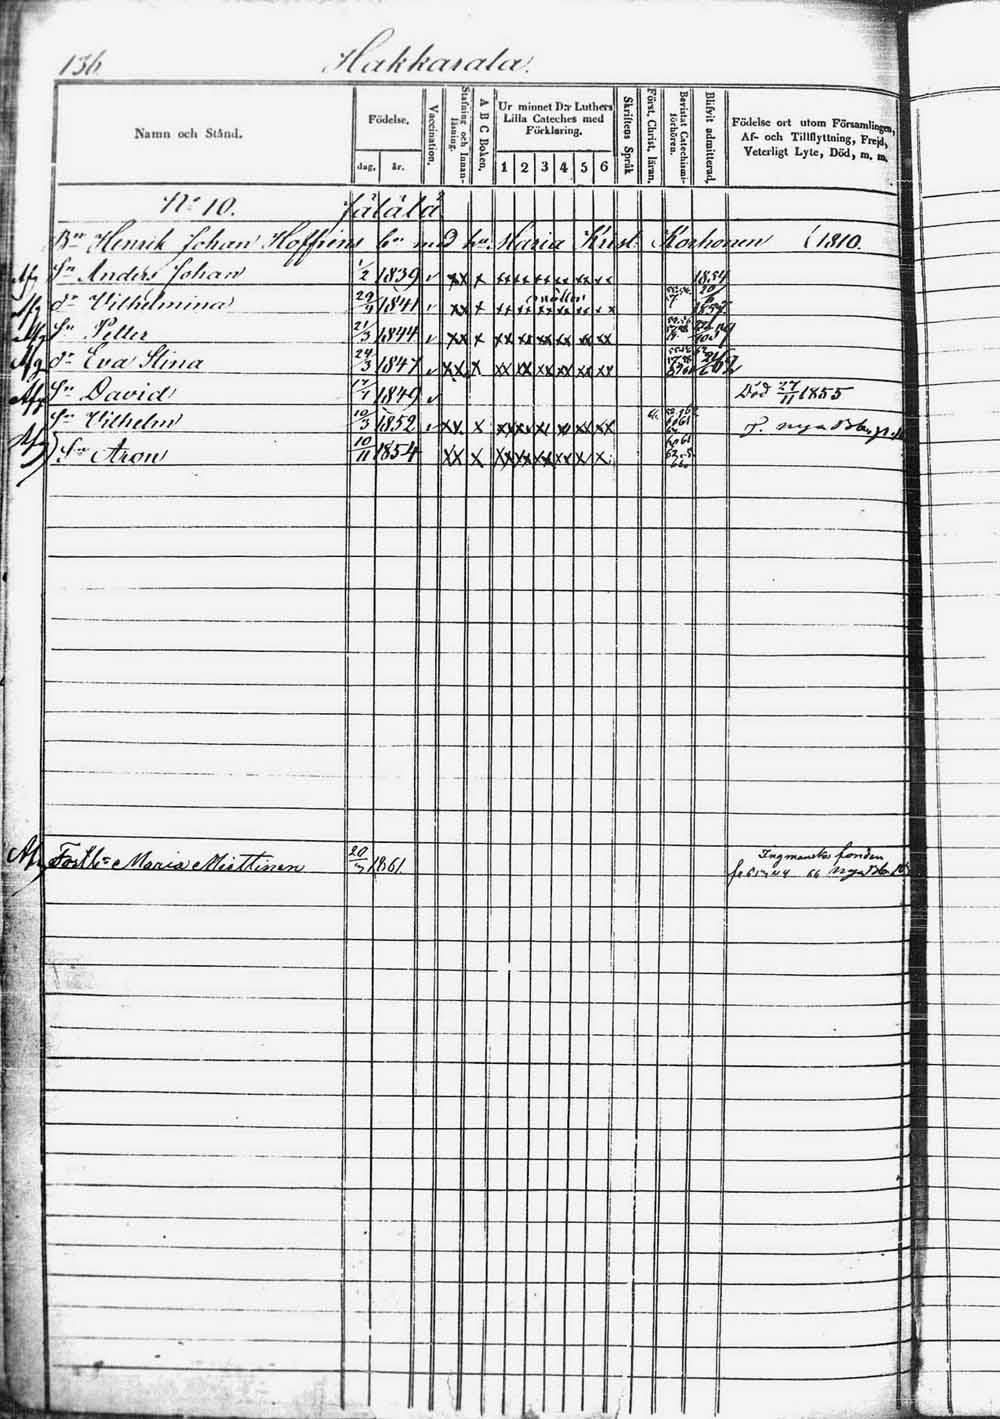 136 Hakkarala.
Namn och Stånd.
Födelse.
dag. år.
Vaccination.
Stafning och Innan-läsning.
A B C Boken.
Ur minnet D:r Luthers
Lilla Cateches med
Förklaring.
1 2 3 4 5 6
Skriftens Språk
Först. Christ. läran.
Bevistat Catechismi-förhören.
Blifvit admitterad.
Födelse ort utom Församlingen,
Af- och Tillflyttning, Frejd,
Veterligt Lyte, Död, m. m.
No 10. Jälälä
Bn Henrik Johan Hoffrens bn med hu. Maria Krist. Korhonen (1810.
Afg Sn Anders Johan 1/2 1839 v xx x xx xx xx xx xx xx 1854
Afg dr Vilhelmina 29/9 1841 v xx x xx xx xx xx xx xx
Afg Sn Petter 21/3 1844 v xx x xx xx xx xx xx xx
Afg dr Eva Stina 24/3 1847 v xx x xx xx xx xx xx xx
Afg Sn David 1849 v Död 27/11 1855
Afg Sn Vilhelm 10/3 1852 v xx x xx xx xx xx xx xx nya
Sn Aron 10/11 1854 xx x xx xx xx xx xx x
Afg Maria Miettinen 1861 fonden
66 nya